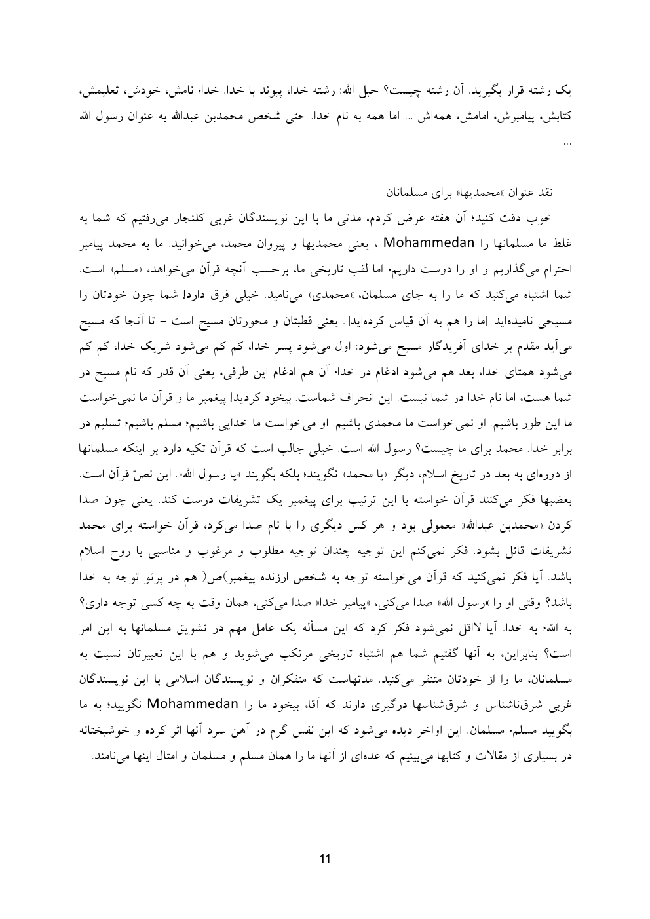 یک رشته قرار بگیرید. آن رشته چیست؟ حبل الله: رشته خدا، پیوند با خدا. خدا، نامش، خودش، تعلیمش،
کتابش، پیامبرش، امامش، همه‌اش ... اما همه به نام خدا. حتی شخص محمدبن عبدالله به عنوان رسول الله
...
نقد عنوان «محمدیها» برای مسلمانان
خوب دقت کنید؛ آن هفته عرض کردم، مدتی ما با این نویسندگان غربی کلنجار می‌رفتیم که شما به
غلط ما مسلمانها را Mohammedan ، یعنی محمدیها و پیروان محمد، می‌خوانید. ما به محمد پیامبر
احترام می‌گذاریم و او را دوست داریم، اما لقب تاریخی ما، برحسب آنچه قرآن می‌خواهد، «مسلم» است.
شما اشتباه می‌کنید که ما را به جای مسلمان، «محمدی» می‌نامید. خیلی فرق دارد! شما چون خودتان را
مسیحی نامیده‌اید [ما را هم به آن قیاس کرده‌اید]. یعنی قطبتان و محورتان مسیح است - تا آنجا که مسیح
می‌آید مقدم بر خدای آفریدگار مسیح می‌شود؛ اول می‌شود پسر خدا، کم کم می‌شود شریک خدا، کم کم
می‌شود همتای خدا، بعد هم می‌شود ادغام در خدا؛ آن هم ادغام این طرفی، یعنی آن قدر که نام مسیح در
شما هست، اما نام خدا در شما نیست. این انحراف شماست. بیخود کردید! پیغمبر ما و قرآن ما نمی‌خواست
ما این طور باشیم. او نمی‌خواست ما محمدی باشیم. او می‌خواست ما خدایی باشیم؛ مسلم باشیم؛ تسلیم در
برابر خدا. محمد برای ما چیست؟ رسول الله است. خیلی جالب است که قرآن تکیه دارد بر اینکه مسلمانها
از دوره‌ای به بعد در تاریخ اسلام، دیگر «یا محمد» نگویند؛ بلکه بگویند «یا رسول الله». این نصّ قرآن است.
بعضیها فکر می‌کنند قرآن خواسته با این ترتیب برای پیغمبر یک تشریفات درست کند. یعنی چون صدا
کردن «محمدبن عبدالله» معمولی بود و هر کس دیگری را با نام صدا می‌کرد، قرآن خواسته برای محمد
تشریفات قائل بشود. فکر نمی‌کنم این توجیه چندان توجیه مطلوب و مرغوب و مناسبی با روح اسلام
باشد. آیا فکر نمی‌کنید که قرآن می‌خواسته توجه به شخص ارزنده پیغمبر)ص( هم در پرتو توجه به خدا
باشد؟ وقتی او را «رسول الله» صدا می‌کنی، «پیامبر خدا» صدا می‌کنی، همان وقت به چه کسی توجه داری؟
به الله، به خدا. آیا لااقل نمی‌شود فکر کرد که این مسأله یک عامل مهم در تشویق مسلمانها به این امر
است؟ بنابراین، به آنها گفتیم شما هم اشتباه تاریخی مرتکب می‌شوید و هم با این تعبیرتان نسبت به
مسلمانان، ما را از خودتان متنفر می‌کنید. مدتهاست که متفکران و نویسندگان اسلامی با این نویسندگان
غربی شرق‌ناشناس و شرق‌شناسها درگیری دارند که آقا، بیخود ما را Mohammedan نگویید؛ به ما
بگویید مسلم، مسلمان. این اواخر دیده می‌شود که این نفس گرم در آهن سرد آنها اثر کرده و خوشبختانه
در بسیاری از مقالات و کتابها می‌بینیم که عده‌ای از آنها ما را همان مسلم و مسلمان و امثال اینها می‌نامند.
11